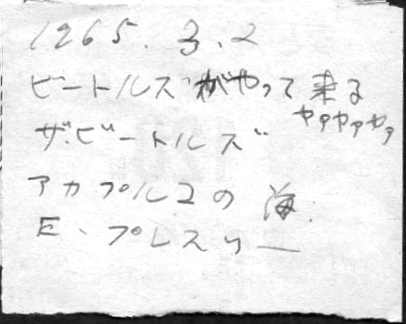 1965.3.2
ビートルズがやって来る
ヤァヤァヤァ
ザ・ビートルズ
アカプルコの海
E、プレスリー